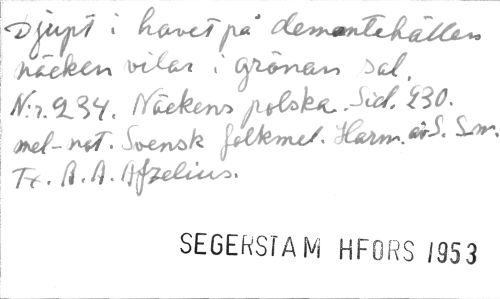 Djupt i havet på demantehällen
näcken vilar i grönan sal.
N:r. 234. Näckens polska. Sid. 230.
mel-not. Svensk folkmel. Harm. av S. Sm.
Tx. A. A. Afzelius.
SEGERSTAM HFORS 1953